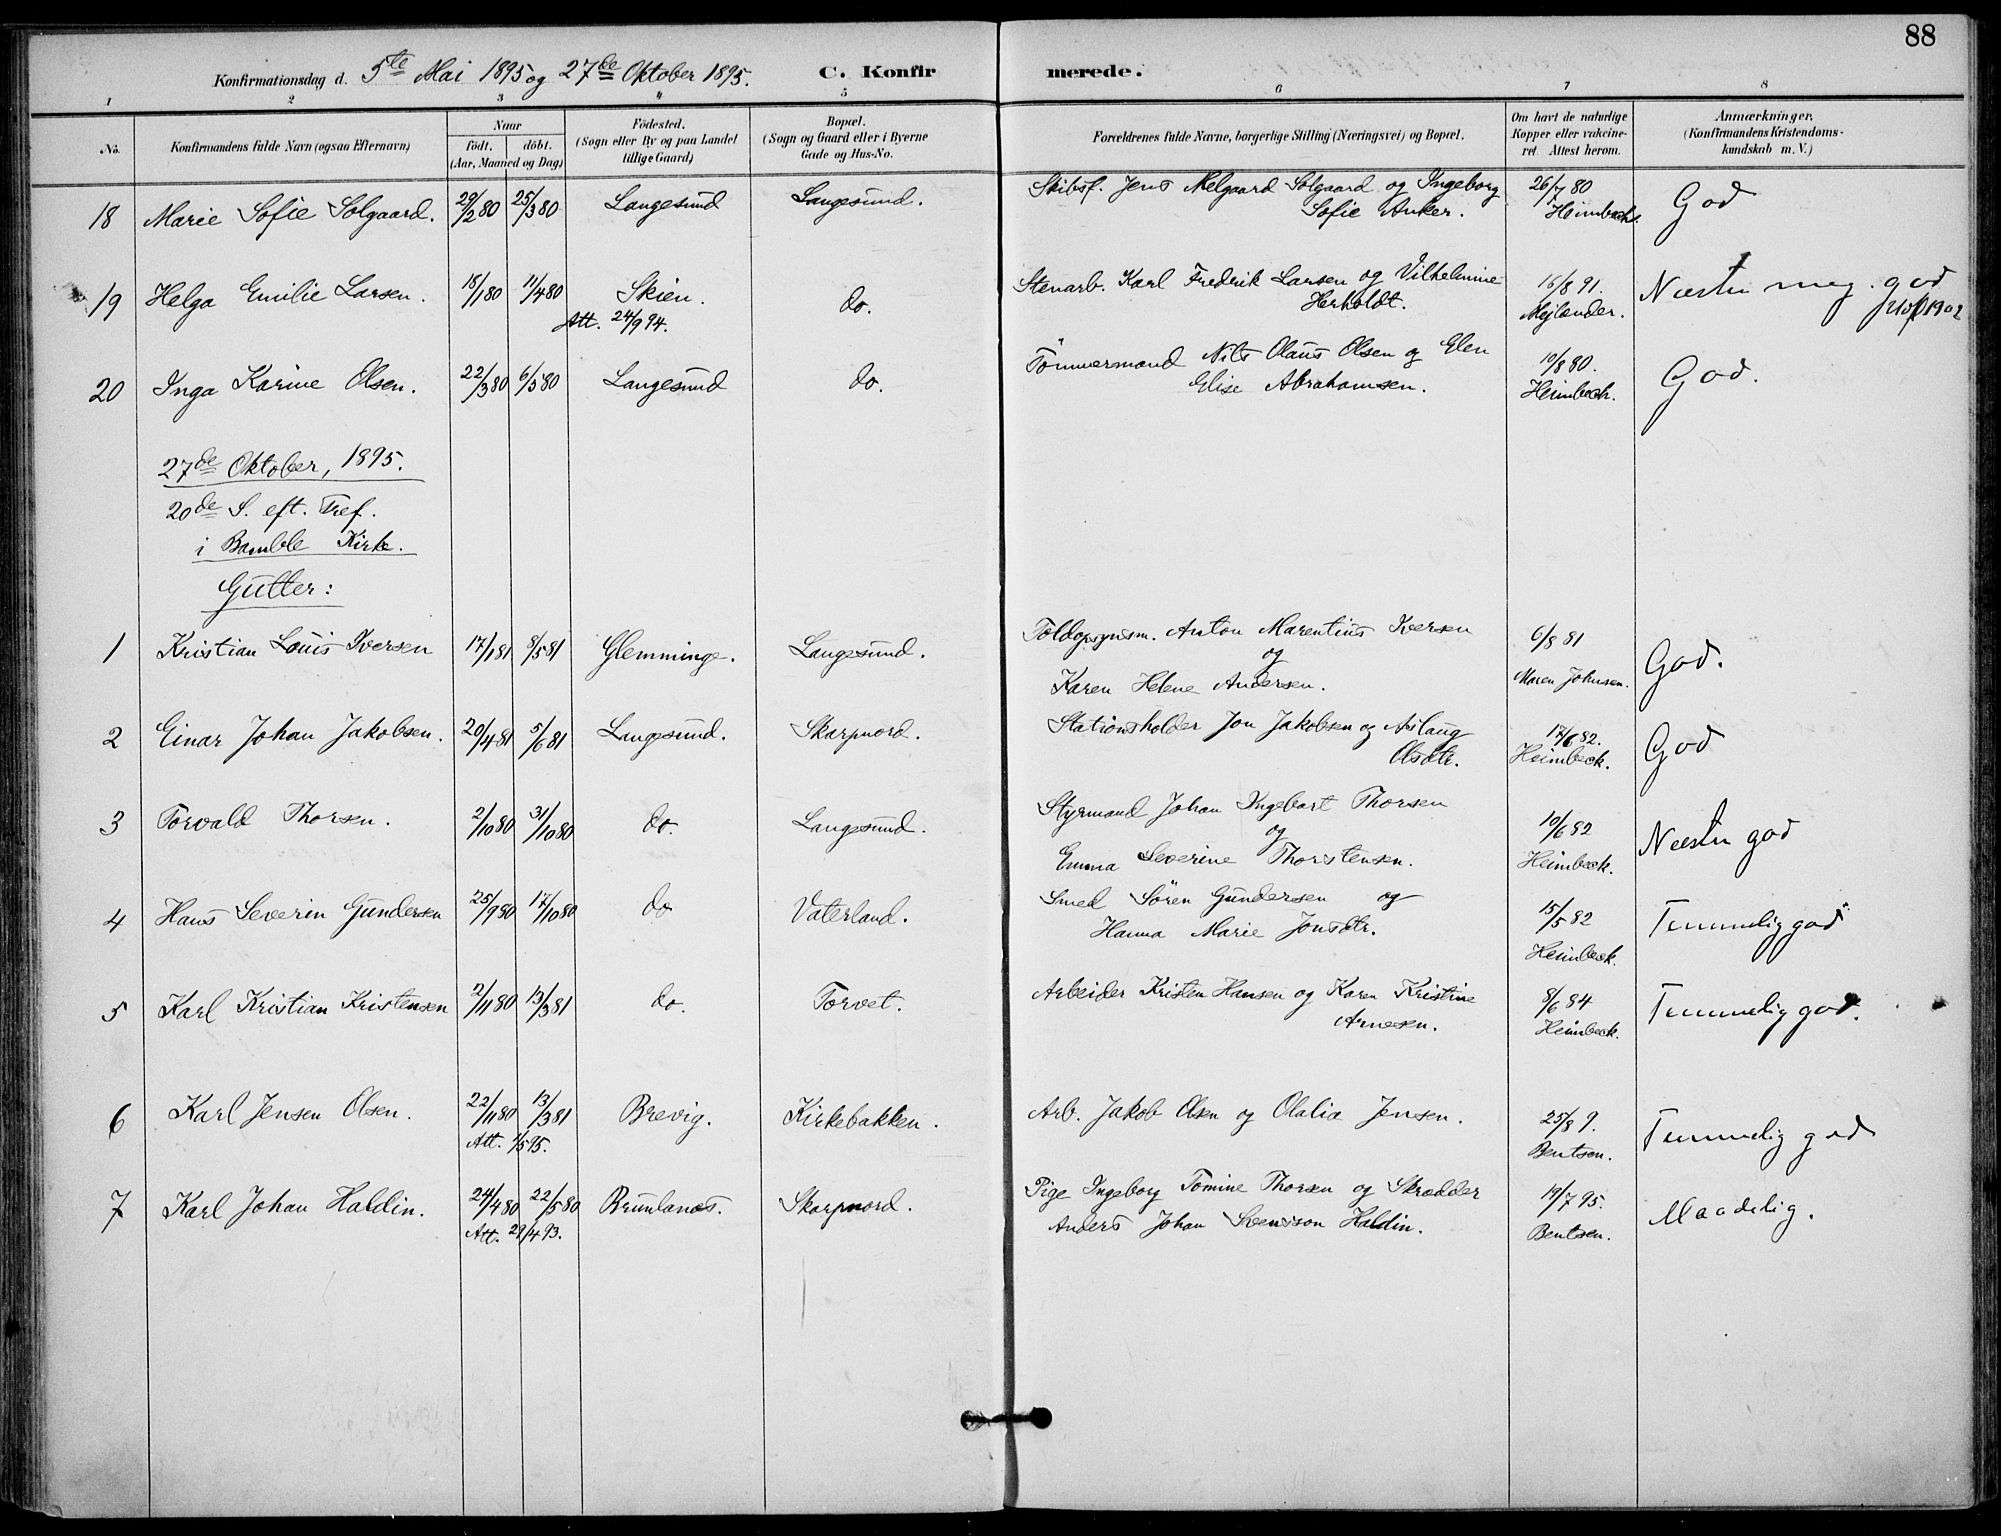 88
Konfirmationsdag d. 5te Mai 1895 og 27de Oktober 1895. C. Konfirmerede.
1 2 3 4 5 6 7 8
No.
Konfirmandens fulde Navn (ogsaa Efternavn)
Naar
födt. döbt.
(Aar, Maaned og Dag)
Födested.
(Sogn eller By og paa Landet
tillige Gaard)
Bopæl.
(Sogn og Gaard eller i Byerne
Gade og Hus-No.
Forældrenes fulde Navne, borgerlige Stilling (Næringsvei) og Bopæl.
Om havt de naturlige
Kopper eller vakcine-
ret. Attest herom.
Anmærkninger.
(Konfirmandens Kristendoms-
kundskab m. V.)
18 Marie Sofie Solgaard. 29/2 80 25/3 80 Langesund Langesund. Skibsf. Jens Melgaard Solgaard og Ingeborg 26/7 80 God
Sofie Anker. Heimbeck.
19 Helga Emilie Larsen. 18/1 80 11/4 80 Skien. do. Stenarb. Karl Fredrik Larsen og Vilhelmine 16/8 91. Næsten meg. god
Att. 24/9 94. Herholdt. Mejlænder. 1902
20 Inga Karine Olsen. 22/3 80 6/5 80 Langesund do. Tömmermand Nils Olaus Olsen og Elen 10/8 80. God.
Elise Abrahamsen. Heimbeck.
27de Oktober, 1895.
20de S. eft. Tref.
i Bamble Kirke.
Gutter:
1 Kristian Louis Iversen 17/1 81 8/5 81 Glemminge. Langesund. Toldopsynsm. Anton Marentius Iversen 6/8 81 God.
og
Karen Helene Andersen. Maren Johnsen.
2 Einar Johan Jakobsen. 20/4 81 5/6 81 Langesund. Skarpnord. Stationsholder Jon Jakobsen og Aslaug 17/6 82. God
Olsdtr. Heimbeck.
3 Torvald Thorsen. 2/10 80 31/10 80 do. Langesund. Styrmand Johan Ingebart Thorsen 10/6 82 Næsten god
og
Emma Severine Thorstensen. Heimbeck.
4 Hans Severin Gundersen 25/9 80 17/10 80 do Vaterland. Smed Sören Gundersen og 15/5 82 Temmelig god
Hanna Marie Jonsdtr. Heimbeck.
5 Karl Kristian Kristensen 2/11 80 13/3 81 do. Torvet. Arbeider Kristen Hansen og Karen Kristine 8/6 84 Temmelig god.
Arnesen. Heimbeck.
6 Karl Jensen Olsen. 22/11 80 13/3 81 Brevig. Kirkebakken. Arb. Jakob Olsen og Olalia Jensen. 25/8 9. Temmelig god
Att. 1/5 95. Bentsen.
7 Karl Johan Haldin. 24/4 80 22/5 80 Brunlanæs. Skarpnord. Pige Ingeborg Tomine Thorsen og Skrædder 19/7 95. Maadelig.
Att. 29/4 93. Anders Johan Svensson Haldin. Bentsen.